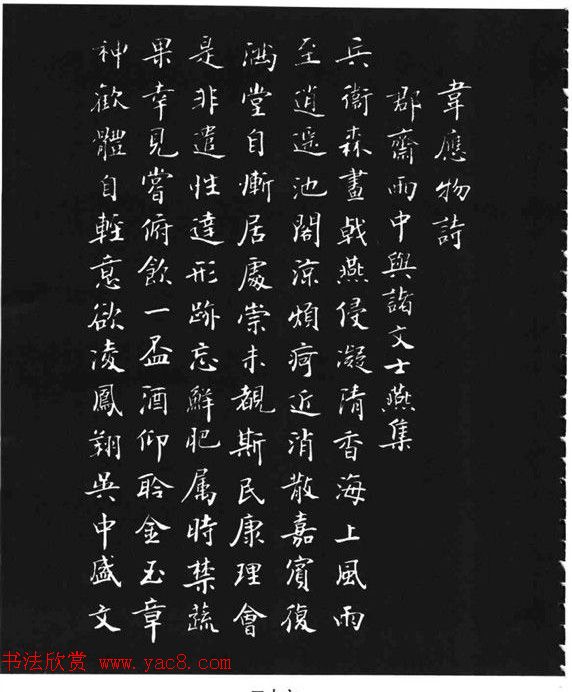 韋應物詩
郡齋雨中與諸文士燕集
兵衛森畫戟燕侵凝清香海上風雨
至逍遥池閣涼煩疴近消散嘉賓復
滿堂自慚居處崇未覩斯民康理會
是非遣性達形跡忘鮮肥属時禁蔬
果幸見嘗俯飲一盃酒仰聆金玉章
神歡體自輕意欲凌鳳翔吳中盛文
书法欣赏 www.yac8.com